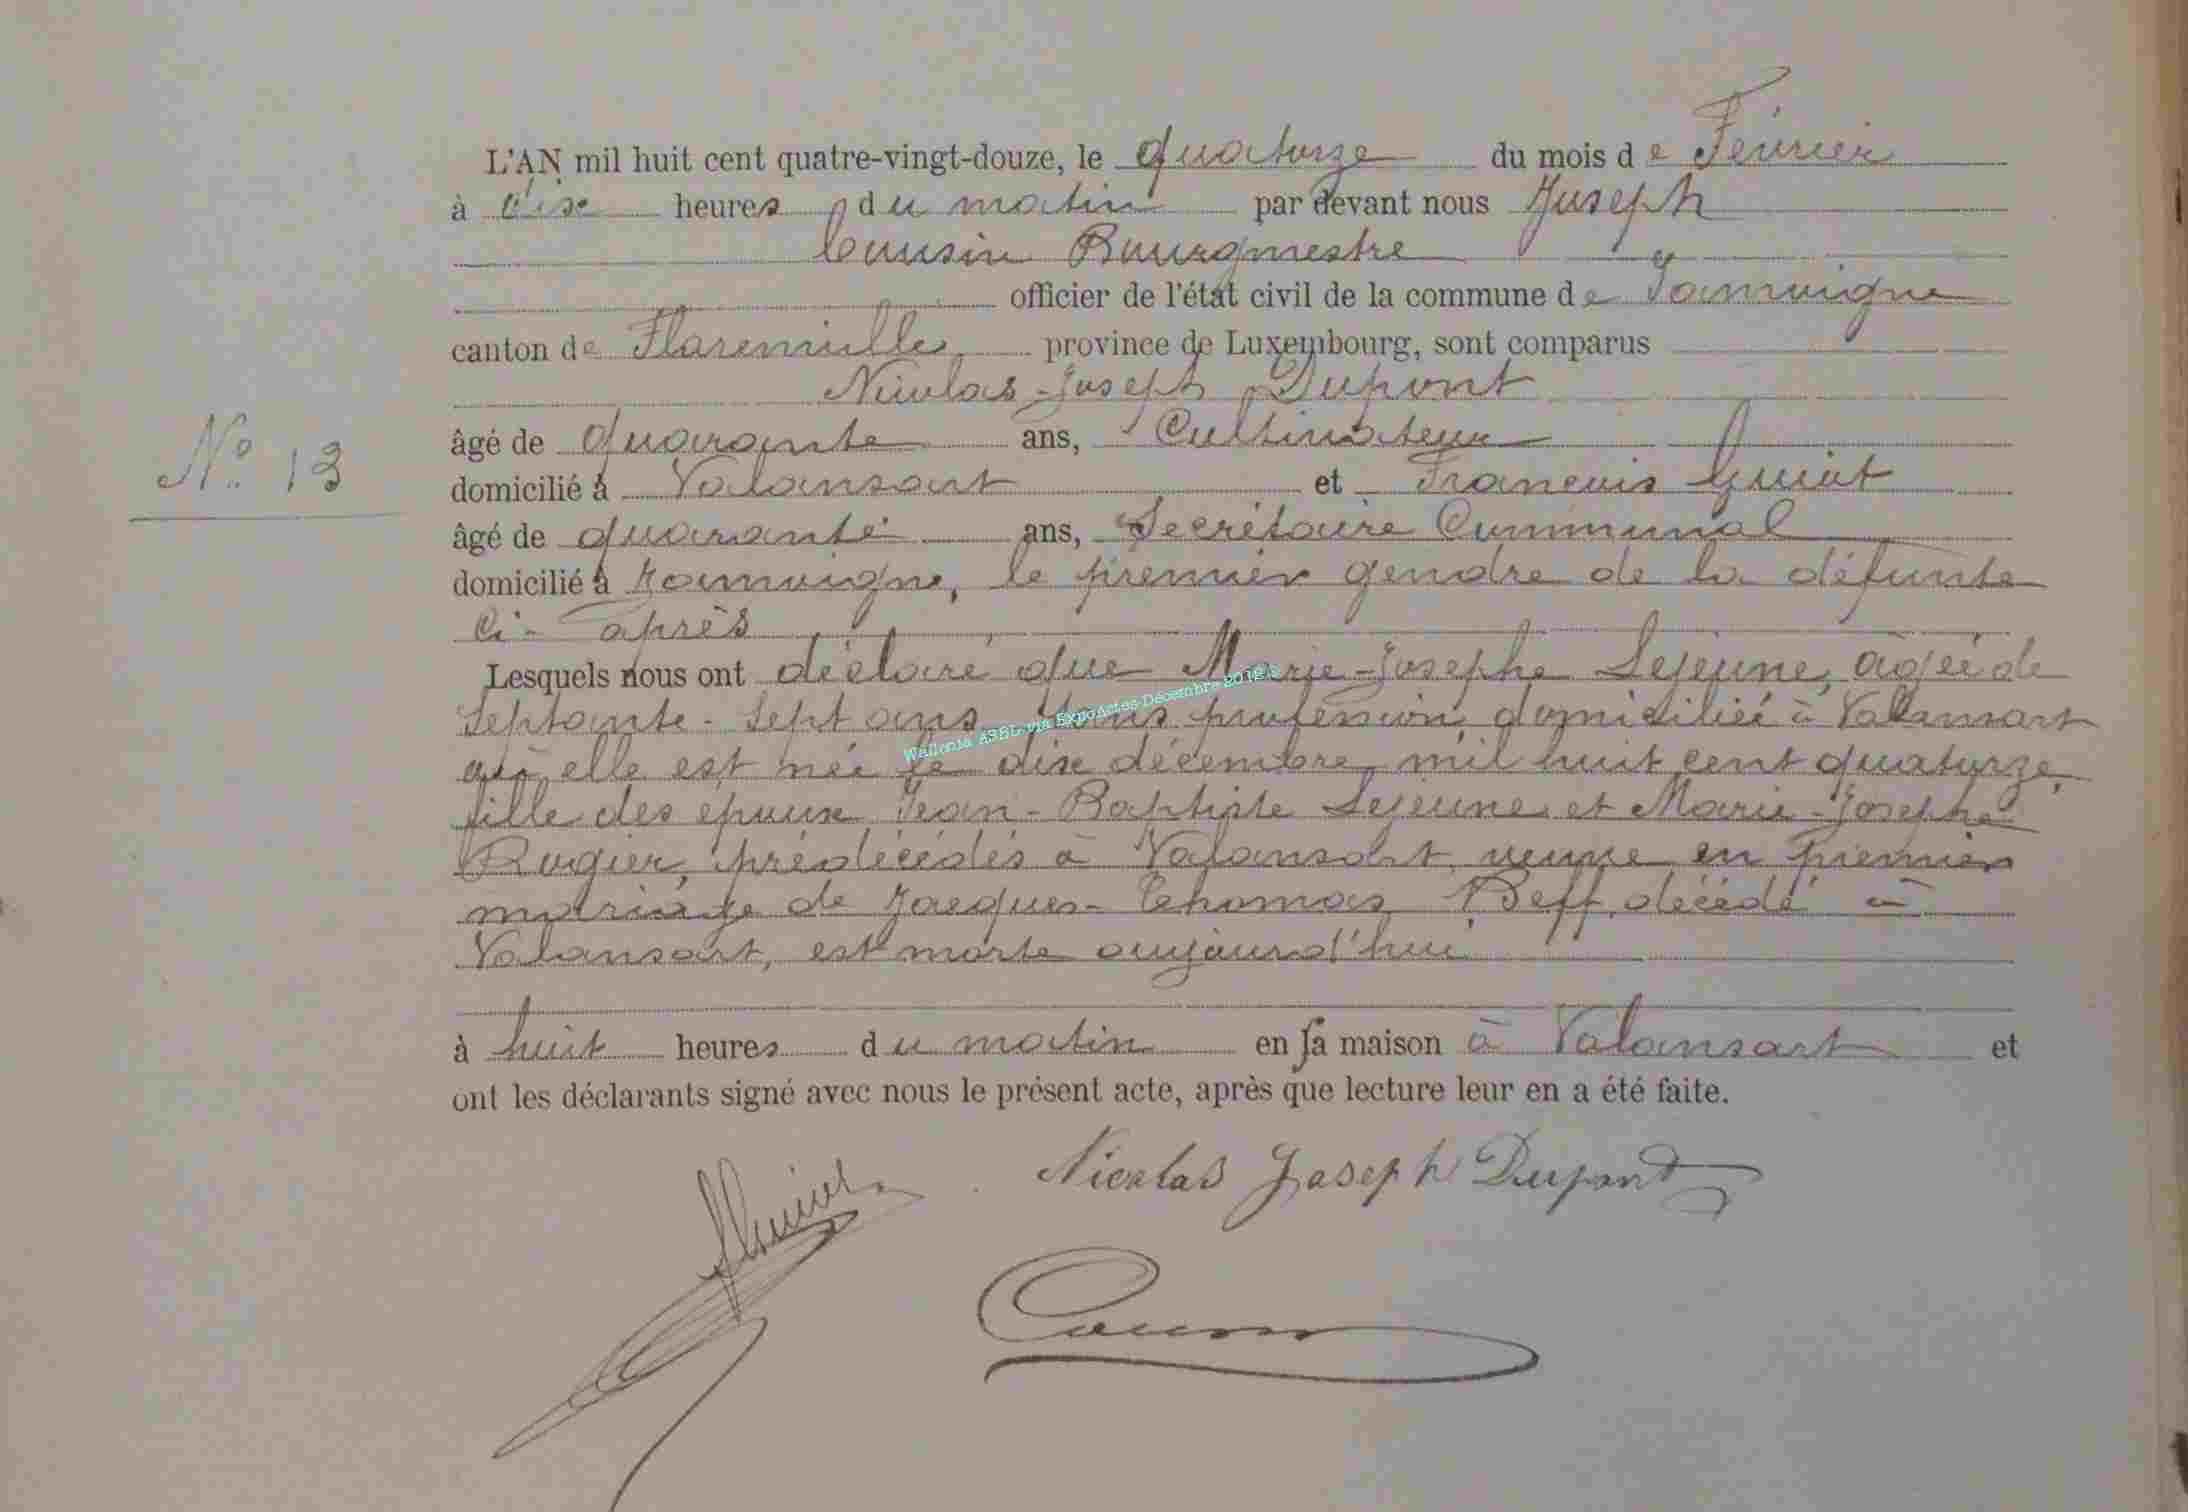 L'AN mil huit cent quatre-vingt-douze, le quatorze du mois de Février
à dix heures du matin par devant nous Joseph
Cousin Bourgmestre
officier de l'état civil de la commune de Jamoigne
canton de Florenville, province de Luxembourg, sont comparus
Nicolas-Joseph Dupont
âgé de quarante ans, Cultivateur
N° 13
domicilié à Valansart et François Guiot
âgé de quarante ans, Secrétaire Communal
domicilié à Jamoigne, le premier gendre de la défunte
ci-après
Lesquels nous ont déclaré que Marie-Josephe Lejeune, âgée de
septante-sept ans, sans profession, domiciliée à Valansart
où elle est née le dix décembre mil huit cent quatorze,
fille des époux Jean-Baptiste Lejeune et Marie-Josephe
Rogier, prédécédés à Valansart, veuve en premier
mariage de Jacques-Thomas Beff, décédé à
Valansart, est morte aujourd'hui
à huit heures du matin en sa maison à Valansart et
ont les déclarants signé avec nous le présent acte, après que lecture leur en a été faite.
Nicolas Joseph Dupont
Cousin
Wallonia ASBL via ExpoActes-Décembre